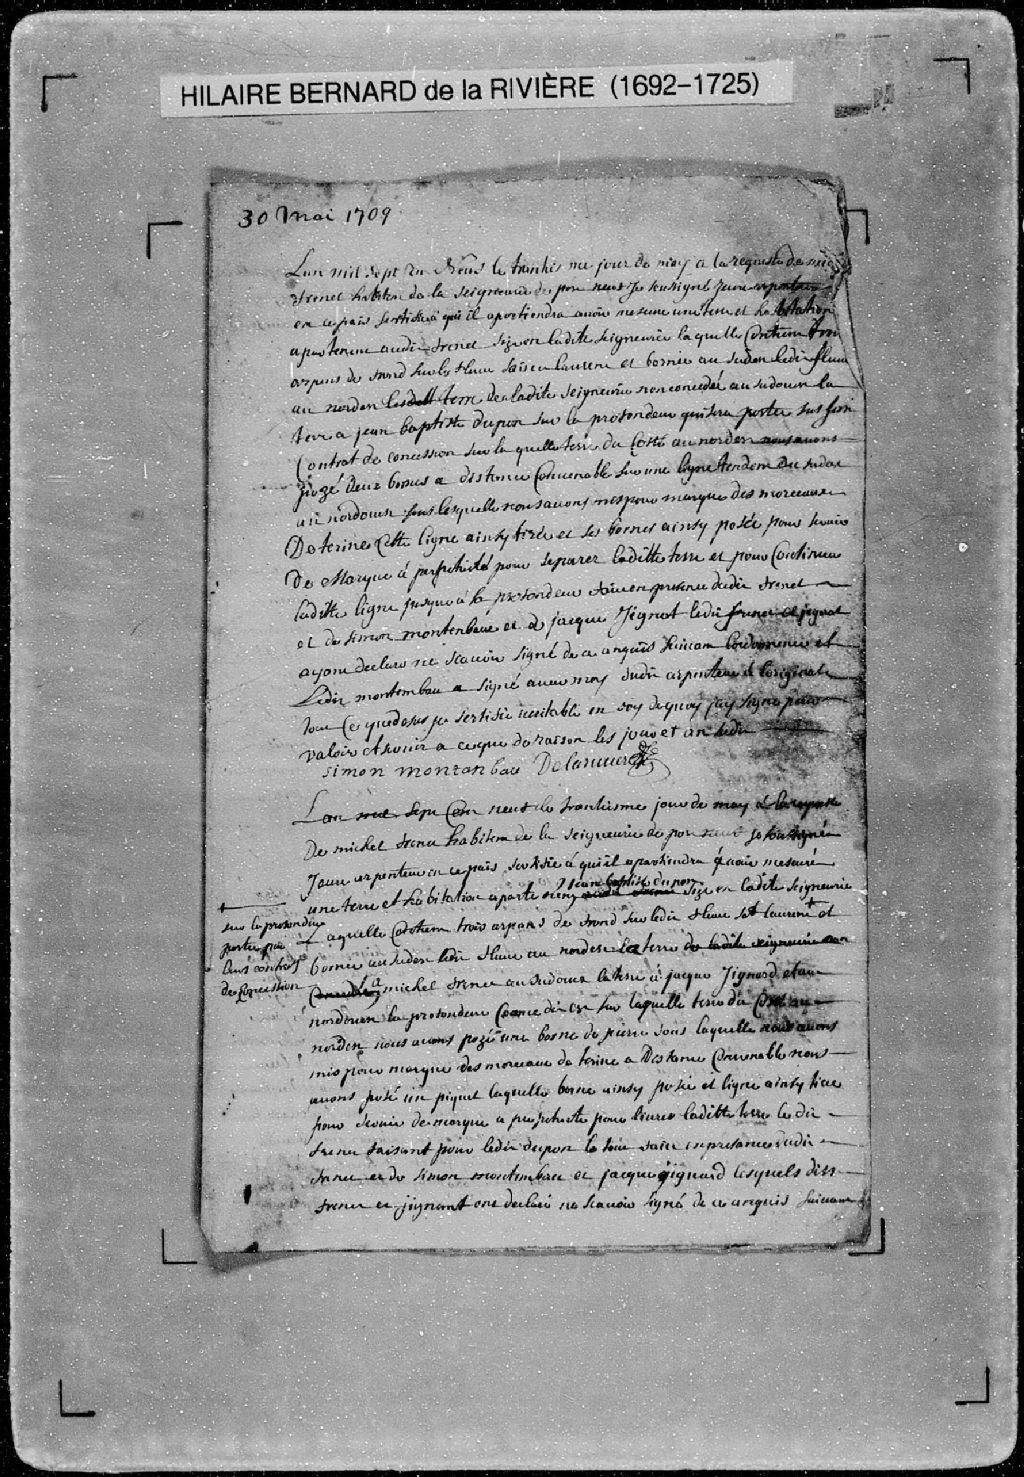 HILAIRE BERNARD de la RIVIÈRE (1692-1725)
30 Mai 1709
Lan mil sept en Neus le tranties me jour de may a la requeste de mic
frenet habiten de la seigneurie de pon neus Je sousigné Jure arpenteur
en ce pais sertifie a qui il apartiendra avoir mesure une terre et habitation
apartenent audit frenet size en ladite seigneurie laquelle Contient trois
arpens de frond sur le fleuve saien laurent et bornee au suden ledit fleuve
au norden les terre de ladite seigneurie non concedé au sudouer la
terre a jean baptiste dupon sur la profondeur qui sera porter sus son
Contrat de concession sur la quelle terre du Costé au norden nous avons
pozé deux bornes a distance Convenable sur une ligne tendent du sudes
au nordouer sous lesquelle nous avons mes pour marque des morceaux
De terine Cette ligne ainsy tirée et ses bornes ainsy posée pour servir
De Marque a perpetuité pour separer laditte terre et pour Continuer
laditte ligne jusque a la profondeur fait en presence dudit frenet
et de simon montenbau et de jacque Jignat ledit frenet et jignat
ayant declare ne scavoir signé de ce anquis suivant lordonnence et
Ledit montembau a signé avec moy dudit arpenteur a loriginal
tout Ce que desus je sertifie veritable en foy dequoy jay signe pour
valoir et servir a ce que de raison les jour et an sudit
simon montanbau Delariviere
Lan mil sept Cent neuf le trantiesme jour de may a la requeste
De michel frenet habitent de la seigneurie de pon neuf Je sousigné
Juré arpenteur en ce pais sertifie a quil apartiendra avoir mesuré
jean baptiste dupon
une terre et habitation aparteneng size en ladite seigneurie
sur la profondeur
portée par
leurs contrats
de concession
laquelle Contient trois arpans de frond sur ledit fleuve St laurent et
bornee au suden ledit fleuve au norden la terre
a michel frenet au sudouer la terre a jacque Jignard et au
nordouer la profondeur Comme dit est sur laquelle terre du Costé au
norden nous avons pozé une borne de pierre sous laquelle nous avons
mis pour marque des morceaux de terine a Distance Convenable nous
avons posé un piquet laquelle borne ainsy posée et ligne ainsy tiree
pour servir de marque a perpetuité pour livrer laditte terre ledit
frenet faisant pour ledit dupon fait en presence dudit
frenet et de simon montembau et jacque gignard lesquels dits
frenet et jignant ont declaré ne scavoir signé de ce anquis suivant